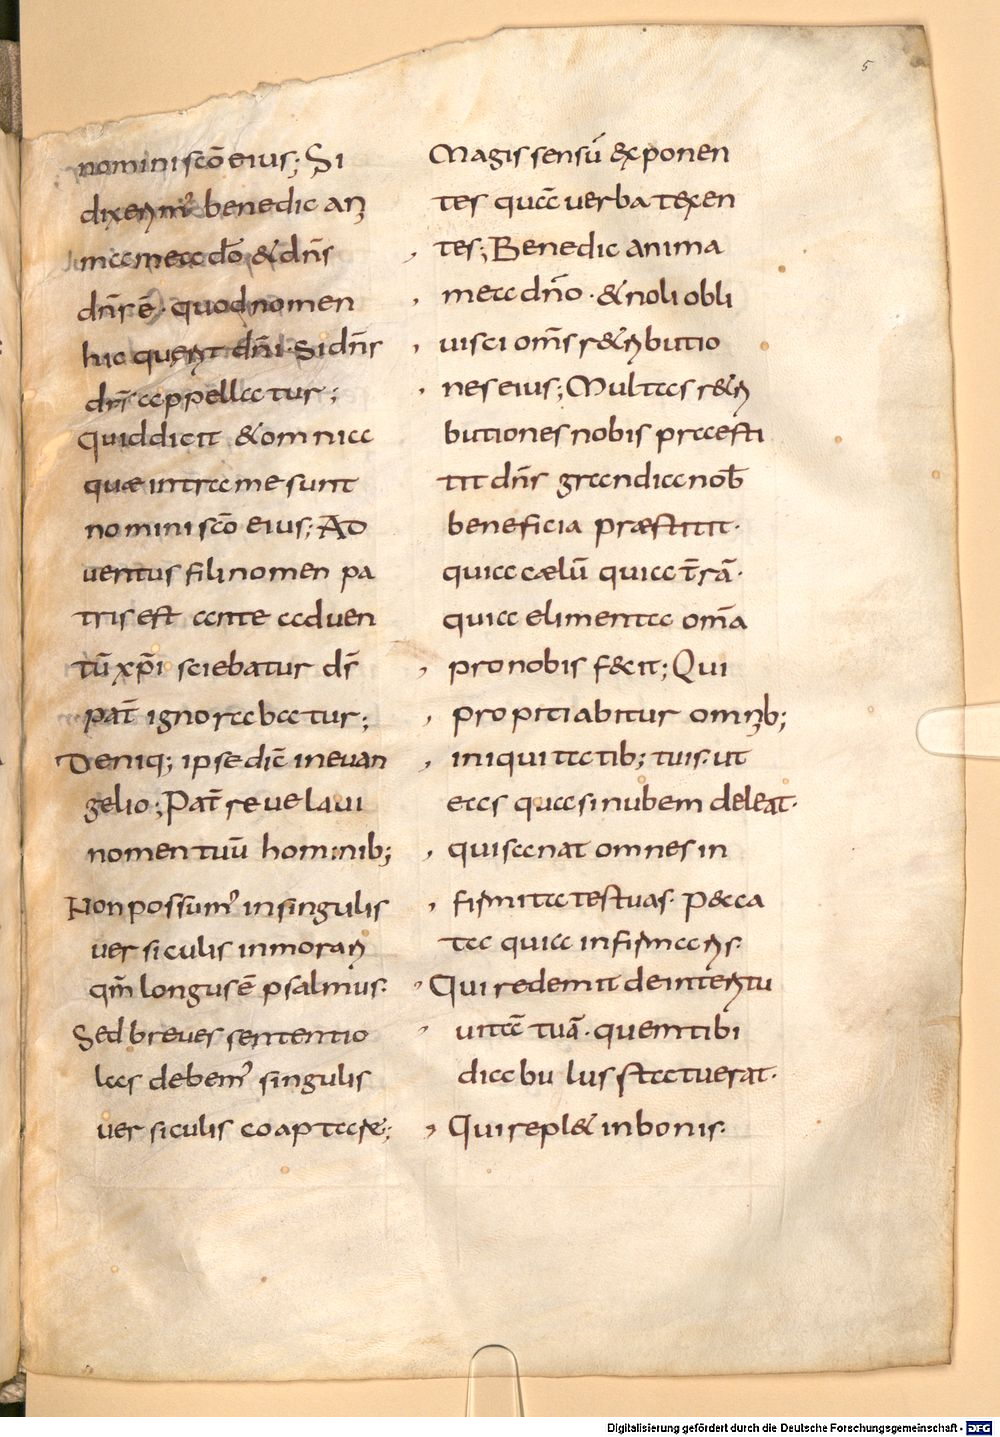 5
nomini scō eius; Si
dixerim' benedic an
ma mea dō & dn̄s
dn̄s ē· quod nomen
hic quer̄t dn̄i· Si dn̄s
dn̄s appellatur;
Quid dicit & omnia
quæ intra me sunt
nomini scō eius; Ad
ventus fili nomen pa
tris est ante aduen
tū xp̄i sciebatur ds̄
pat̄ ignorabatur;
Deniq; ipse dic̄ in evan
gelio; Pat̄ revelaui
nomen tuū hominib;
Non possum' in singulis
uersiculis inmorari
qm̄ longus ē psalmus·
Sed breues sententio
las debem' singulis
uersiculis coaptare;
Magis sensū exponen
tes quā uerba texen
tes; Benedic anima
mea dn̄o· & noli obli
uisci om̄s r&ributio
nes eius; Multas r&ri
butiones nobis præsti
tit dn̄s grandia nob̄
beneficia præstitit·
quia cælū quia t̄rā·
quia elimenta om̄a
pro nobis f&cit; Qui
propitiabitur omnib;
iniquitatib; tuis· ut
eas quasi nubem deleat·
qui sanat omnes in
firmitates tuas· Pecca
ta quia infirma eris·
Qui redemit de interitu
uitā tuā· quem tibi
diabulus statuerat·
Qui repl& in bonis·
Digitalisierung gefördert durch die Deutsche Forschungsgemeinschaft - DFG